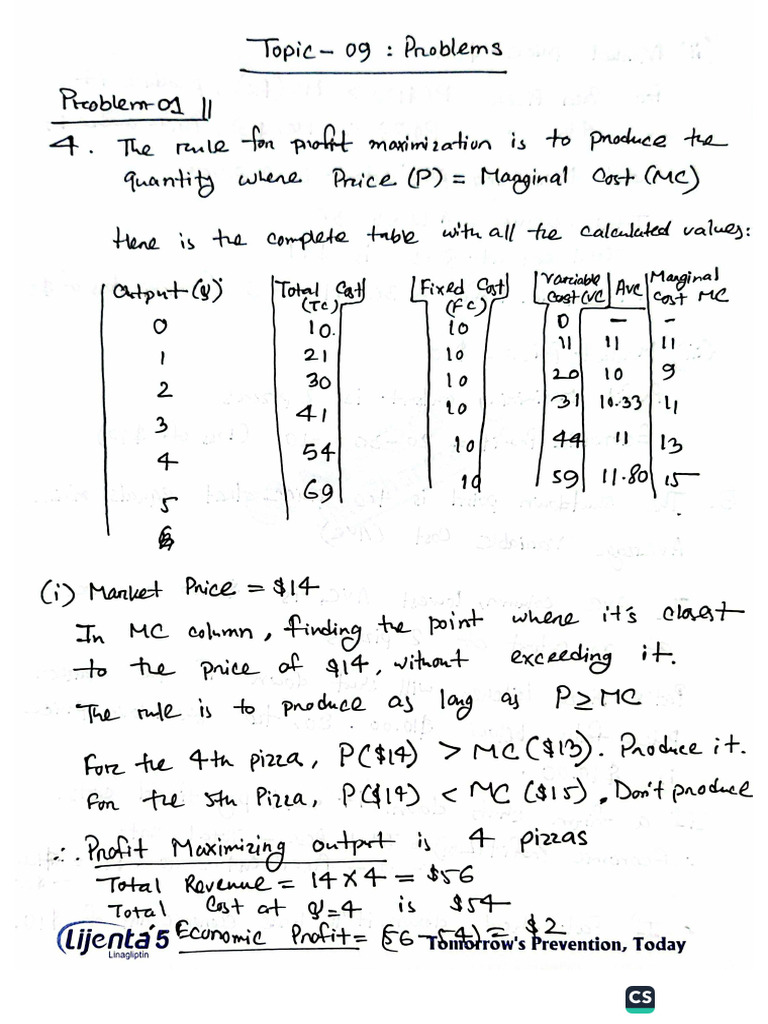 Topic - 09 : Problems
Problem-01 ||
4. The rule for profit maximization is to produce the
quantity where Price (P) = Marginal Cost (MC)
Here is the complete table with all the calculated values:
Output (Q) | Total Cost (TC) | Fixed Cost (FC) | Variable Cost (VC | AVC | Marginal Cost MC
0 | 10. | 10 | 0 | — | —
1 | 21 | 10 | 11 | 11 | 11
2 | 30 | 10 | 20 | 10 | 9
3 | 41 | 10 | 31 | 10.33 | 11
4 | 54 | 10 | 44 | 11 | 13
5 | 69 | 10 | 59 | 11.80 | 15
(i) Market Price = $14
In MC column, finding the point where it's closest
to the price of $14, without exceeding it.
The rule is to produce as long as P≥MC
For the 4th pizza, P($14) > MC ($13). Produce it.
For the 5th Pizza, P($14) < MC ($15), Don't produce
∴ Profit Maximizing output is 4 pizzas
Total Revenue = 14 × 4 = $56
Total Cost at Q=4 is $54
Economic Profit = (56-54) = $2
Lijenta 5
Linagliptin
Tomorrow's Prevention, Today
CS